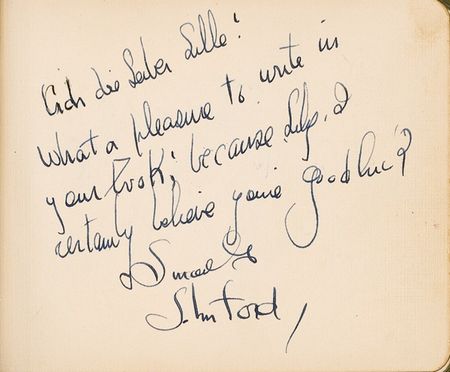 What a pleasure to write in
your book; because I
certainly believe you're good luck?
Sincerely
John Ford,